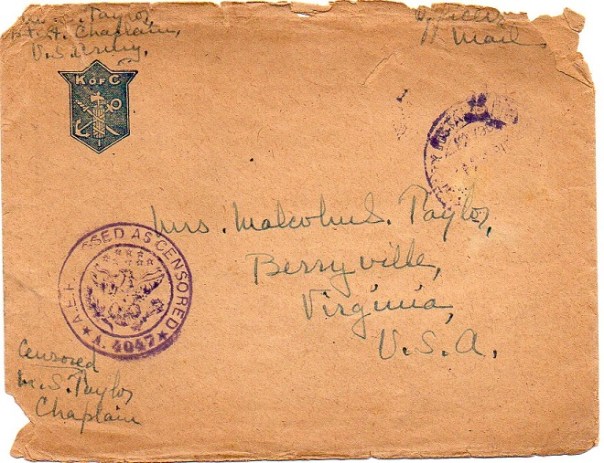 S. Taylor
1st Lt. Chaplain,
U.S. Army.
Officer's
Mail
K OF C
Mrs. Malcolm S. Taylor,
Berryville,
Virginia,
U.S.A.
A.E.F. PASSED AS CENSORED
A. 4047
Censored
M. S. Taylor
Chaplain